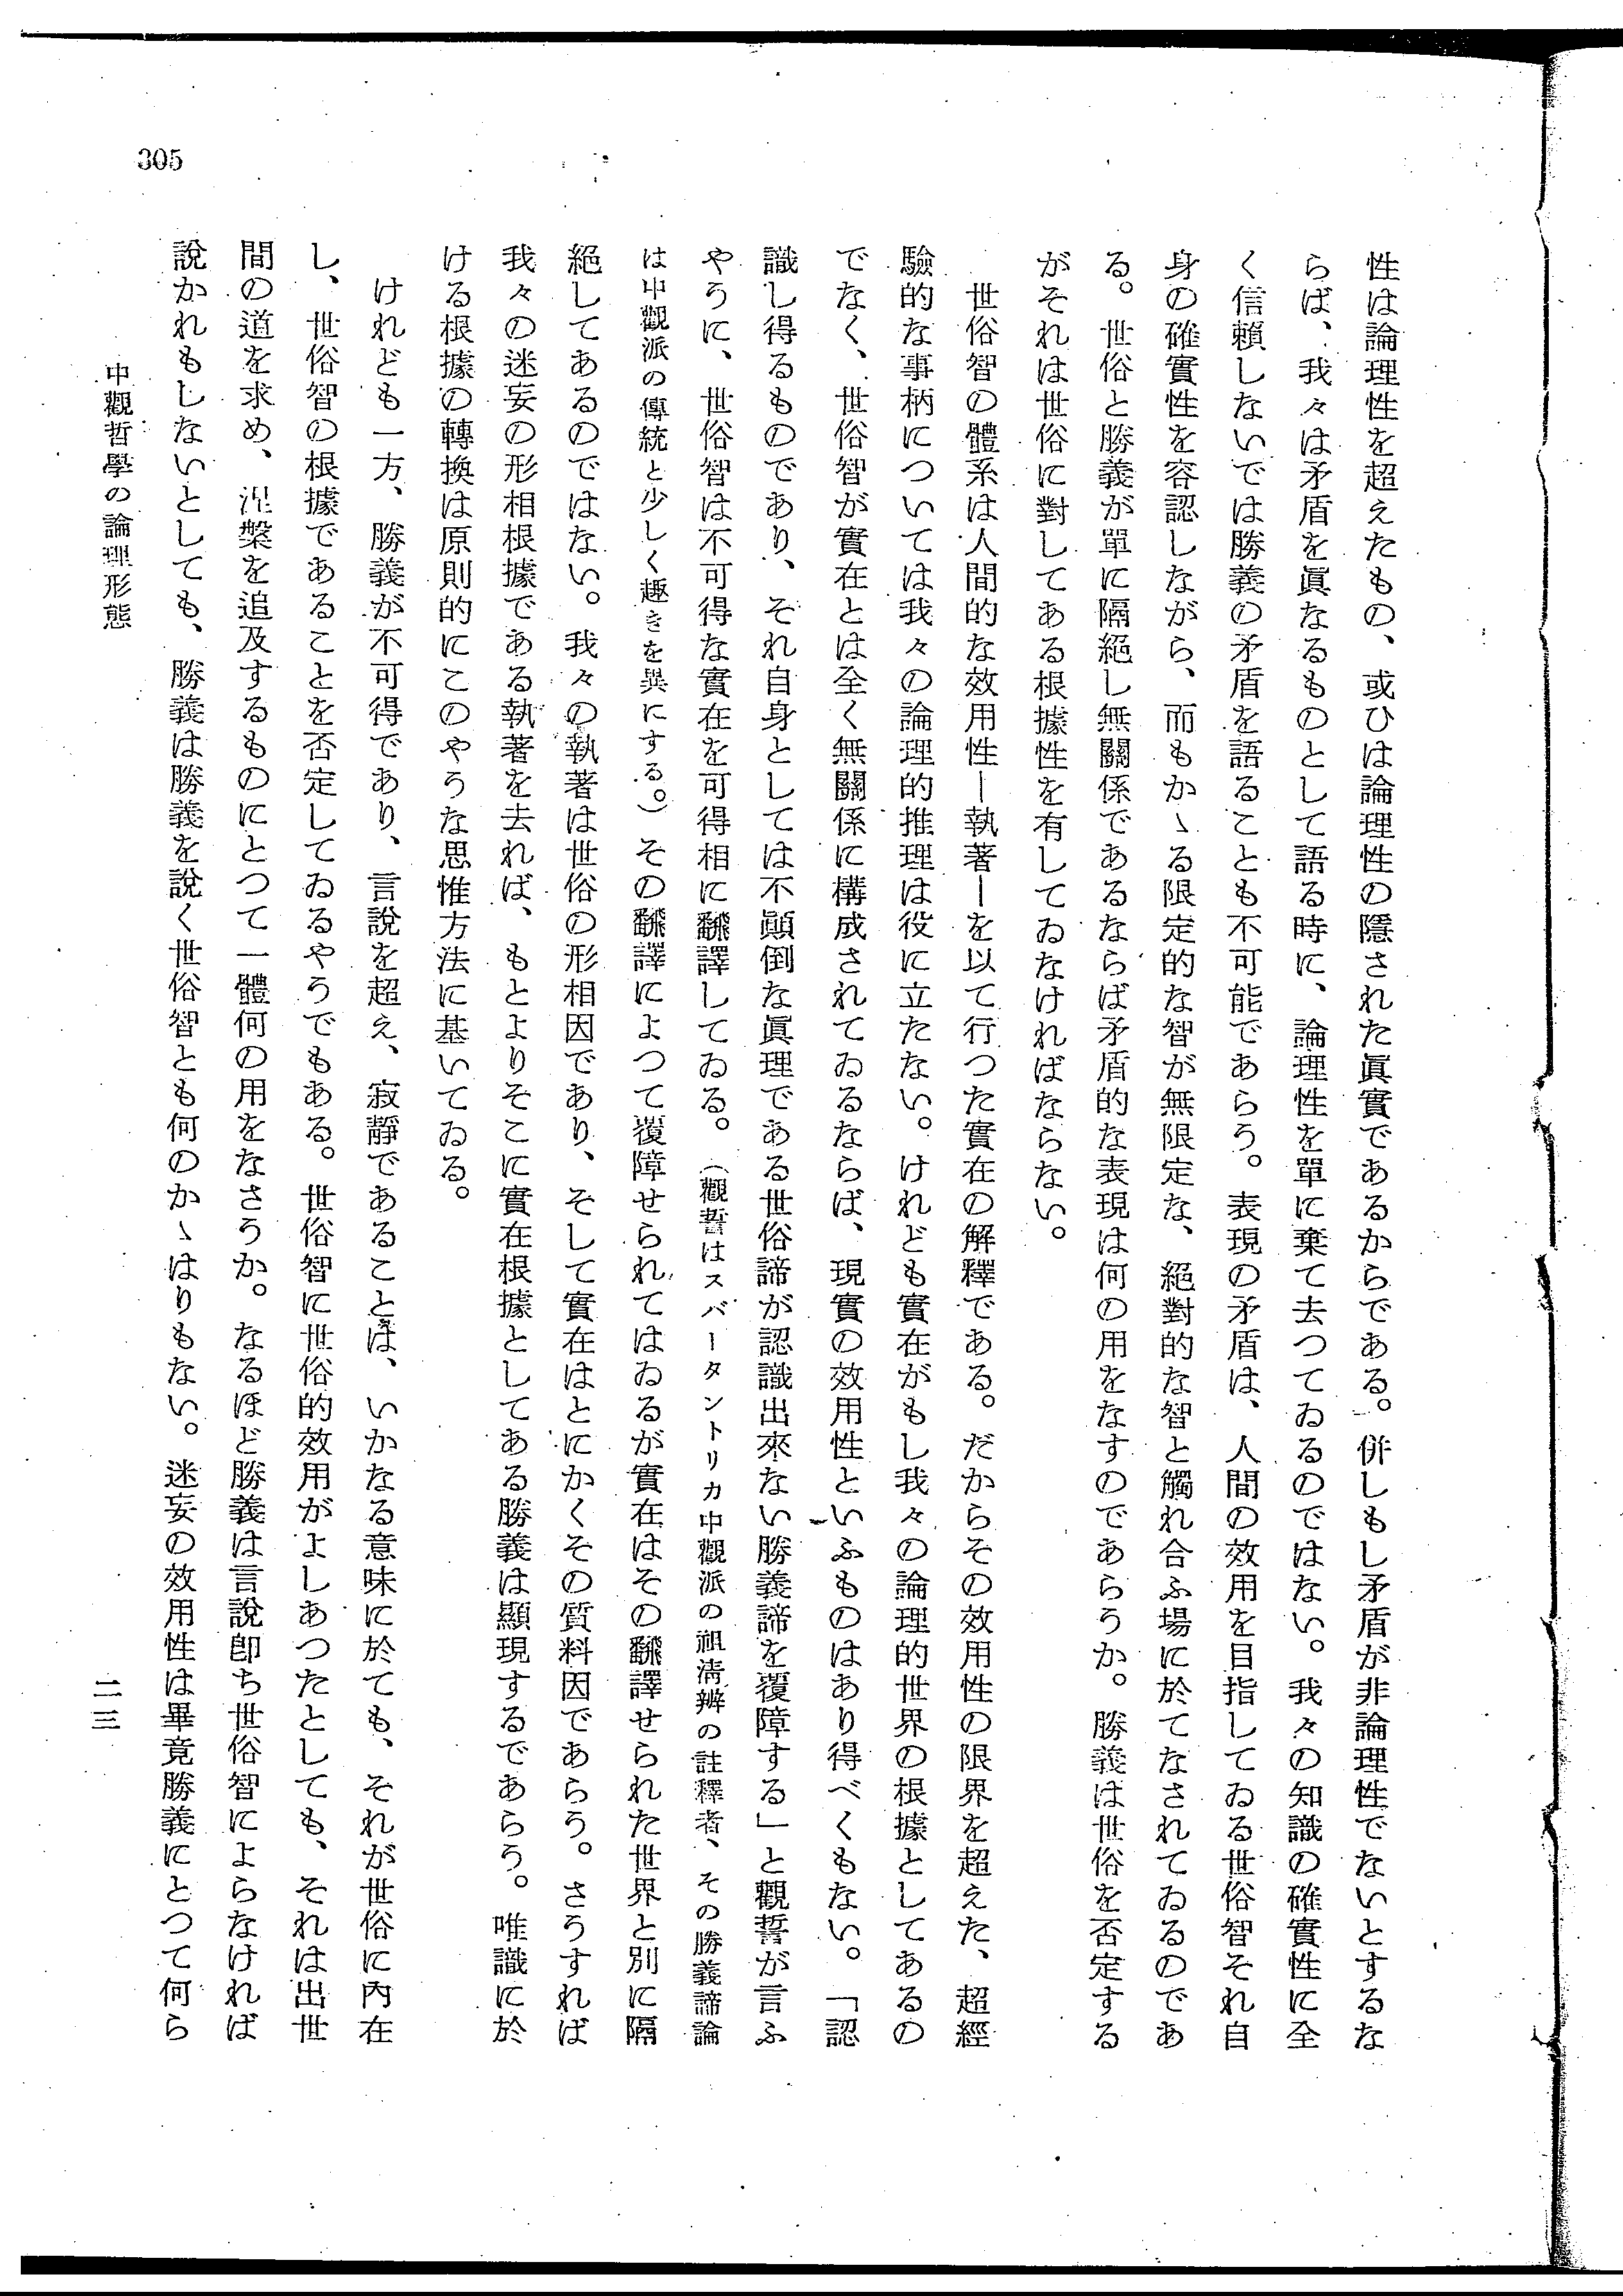 性は論理性を超えたもの、或ひは論理性の隱された眞實であるからである。併しもし矛盾が非論理性でないとするな
らば、我々は矛盾を眞なるものとして語る時に、論理性を單に棄て去つてゐるのではない。我々の知識の確實性に全
く信頼しないでは勝義の矛盾を語ることも不可能であらう。表現の矛盾は、人間の效用を目指してゐる世俗智それ自
身の確實性を容認しながら、而もかゝる限定的な智が無限定な、絕對的な智と觸れ合ふ場に於てなされてゐるのであ
る。世俗と勝義が單に隔絕し無關係であるならば矛盾的な表現は何の用をなすのであらうか。勝義は世俗を否定する
がそれは世俗に對してある根據性を有してゐなければならない。
世俗智の體系は人間的な效用性―執著―を以て行つた實在の解釋である。だからその效用性の限界を超えた、超經
驗的な事柄については我々の論理的推理は役に立たない。けれども實在がもし我々の論理的世界の根據としてあるの
でなく、世俗智が實在とは全く無關係に構成されてゐるならば、現實の效用性といふものはあり得べくもない。「認
識し得るものであり、それ自身としては不顚倒な眞理である世俗諦が認識出來ない勝義諦を覆障する」と觀誓が言ふ
やうに、世俗智は不可得な實在を可得相に飜譯してゐる。（觀誓はスバータントリカ中觀派の祖淸辨の註釋者、その勝義諦論
は中觀派の傳統と少しく趣きを異にする。）その飜譯によつて覆障せられてはゐるが實在はその飜譯せられた世界と別に隔
絕してあるのではない。我々の執著は世俗の形相因であり、そして實在はとにかくその質料因であらう。さうすれば
我々の迷妄の形相根據である執著を去れば、もとよりそこに實在根據としてある勝義は顯現するであらう。唯識に於
ける根據の轉換は原則的にこのやうな思惟方法に基いてゐる。
けれども一方、勝義が不可得であり、言說を超え、寂靜であることは、いかなる意味に於ても、それが世俗に內在
し、世俗智の根據であることを否定してゐるやうでもある。世俗智に世俗的效用がよしあつたとしても、それは出世
間の道を求め、涅槃を追及するものにとつて一體何の用をなさうか。なるほど勝義は言說卽ち世俗智によらなければ
說かれもしないとしても、勝義は勝義を說く世俗智とも何のかゝはりもない。迷妄の效用性は畢竟勝義にとつて何ら
中觀哲學の論理形態
二三
305